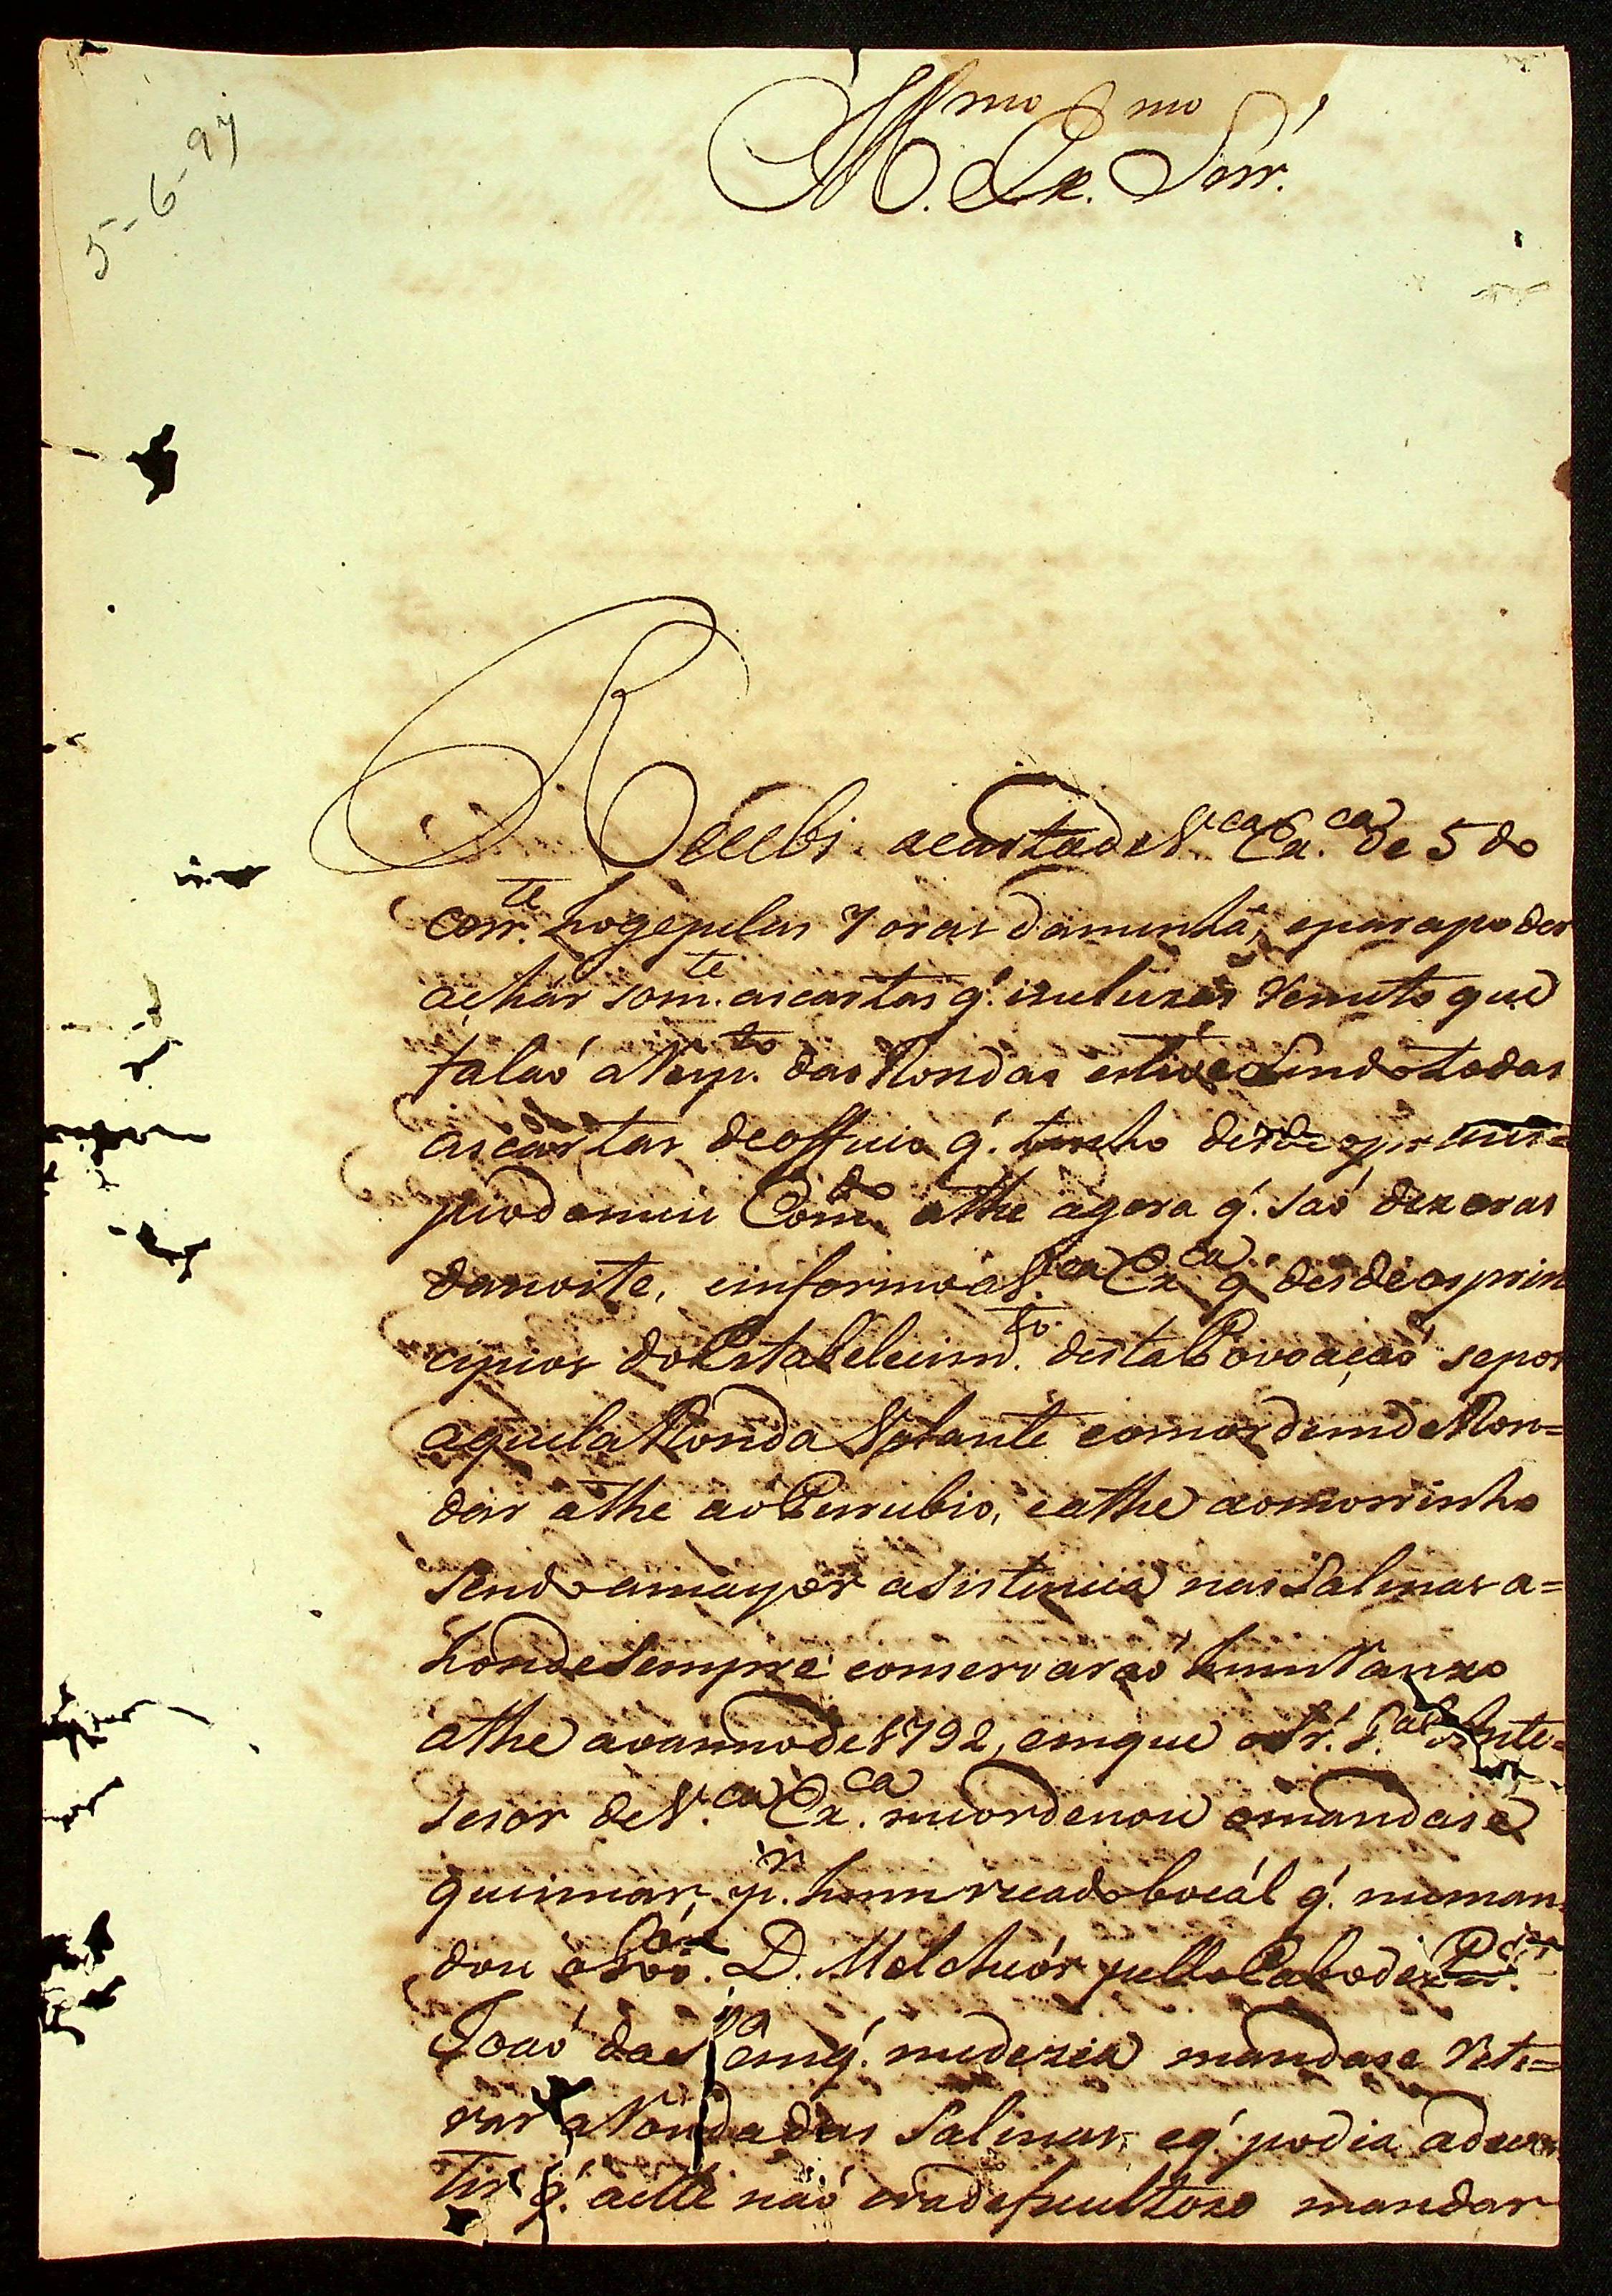 5-6-97
Ill.mo Ex.mo Senr.
Recebi acartade V.ca Ex.ca de 5 do
corr.te hoge pelas 7 oras damenhã, eparapoder
achár som.te ascartas q'. incluzas Remeto que
falaó aResp.to das Rondas estive Lendo todas
ascartas deofficio q'. tenho desde oprinci=
piodemeu Com.do athe agora q'. saó dez oras
danoite, einformoa V.ca Ex.ca q'. desde osprin
cipios do Estabelecim.to destaPovoaçaó sepos
aquela Ronda Volante comordemde Ron=
dar athe ao Penubio, eathe aomorrinho
sendo amayor asistencia nas Salinas a=
honde sempre conservaraó hum Ranxo
athe aoannode 1792, emque oSr. G.al Ante=
sesor de V.ca Ex.ca meordenou omandase
queimar, p.r hum recado bocál q'. meman
dou o D. Melchiór pello Cabo de
Joaó da S.a emq'. medezia mandase Reti=
rar aRonda das Salinas, eq'. podia adver
tir q'. aelle naó eradeficultozo mandar